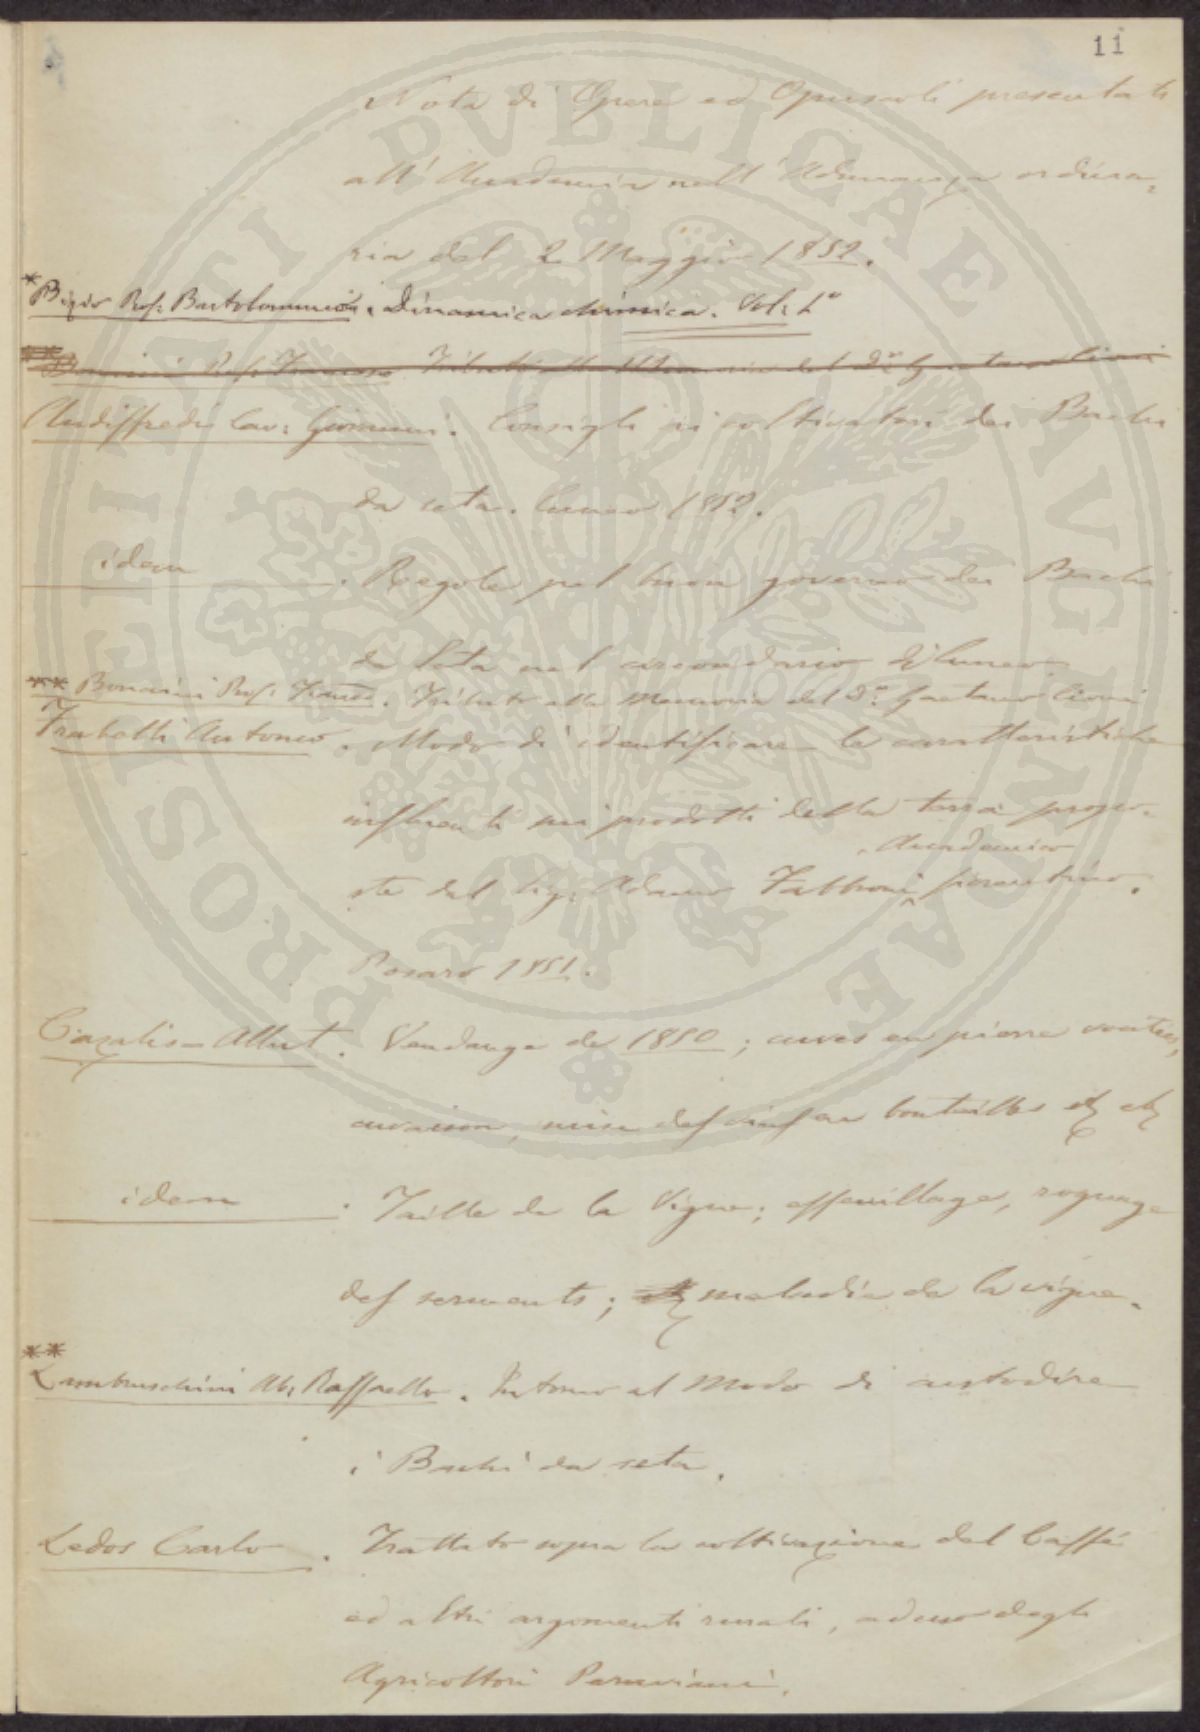 11
Nota di Opere ed Opuscoli presentati
all' Accademia nell' Adunanza ordina=
ria del 2 Maggio 1852.
* Bizio Prof: Bartolommeo. Dinamica chimica. Vol: 1°
** Bonaini Prof: Franco. Tributo alla Memoria del Dr. Gaetano Cioni
Audiffredi Cav: Giovanni. Consigli ai coltivatori dei Bachi
da seta. Cuneo 1852.
idem. Regole pel buon governo dei Bachi
da Seta nel circondario di Cuneo
** Bonaini Prof: Franco. Tributo alla Memoria del Dr. Gaetano Cioni
Frabotti Antonio. Modo di identificare le caratteristiche
influenti sui prodotti della terra propo-
ste dal Sig: Adamo Fabbroni Accademico fiorentino.
Pesaro 1851.
Cazalis-Allut. Vendange de 1850; cuves en pierre voutées,
cuvaison, mise des vins en bouteilles etc etc
idem. Taille de la Vigne; effeuillage, rognage
des serments; maladie de la vigne.
** Lambruschini Ab: Raffaello. Intorno al Modo di custodire
i Bachi da seta.
Ledos Carlo. Trattato sopra la coltivazione del Caffé
ed altri argomenti rurali, ad uso degli
Agricoltori Peruviani.
PROSPERITATI PVBLICAE AVGENDAE